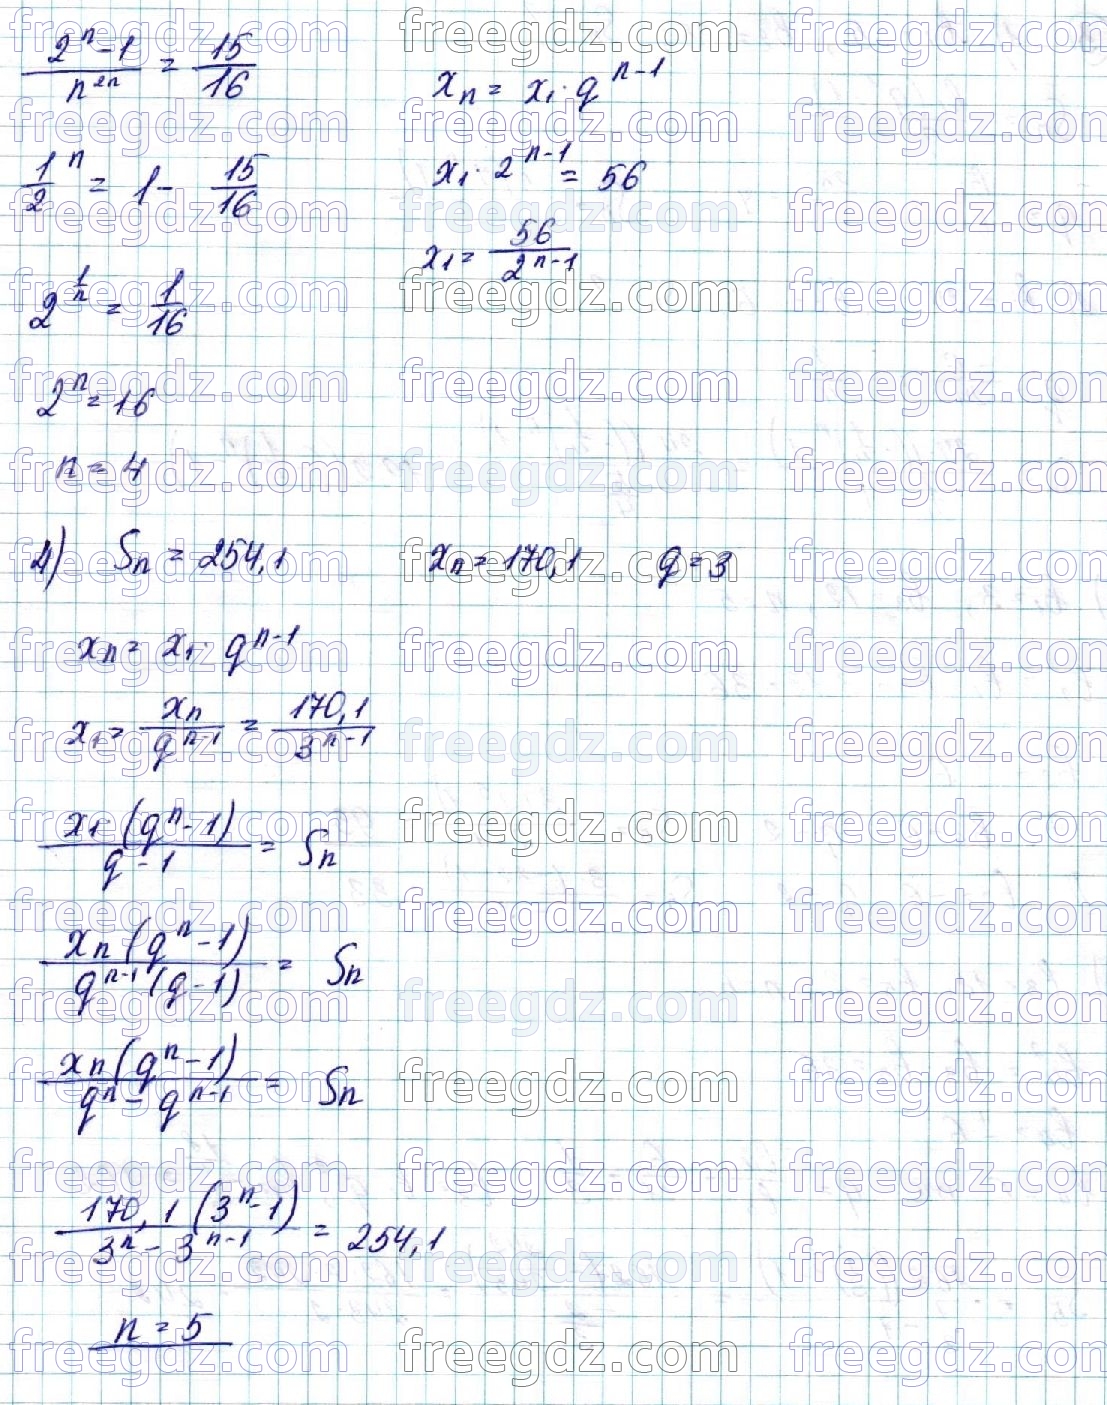 (2ⁿ-1)/n²ⁿ = 15/16
xn = x₁·qⁿ⁻¹
1/2ⁿ = 1 - 15/16
x₁·2ⁿ⁻¹ = 56
x₁ = 56/2ⁿ⁻¹
2^(1/n) = 1/16
2ⁿ = 16
n = 4
4) Sn = 254,1 xn = 170,1 q = 3
xn = x₁·qⁿ⁻¹
x₁ = xn/qⁿ⁻¹ = 170,1/3ⁿ⁻¹
x₁(qⁿ-1)/(q-1) = Sn
xn(qⁿ-1)/(qⁿ⁻¹(q-1)) = Sn
xn(qⁿ-1)/(qⁿ-qⁿ⁻¹) = Sn
170,1(3ⁿ-1)/(3ⁿ-3ⁿ⁻¹) = 254,1
n = 5
freegdz.com